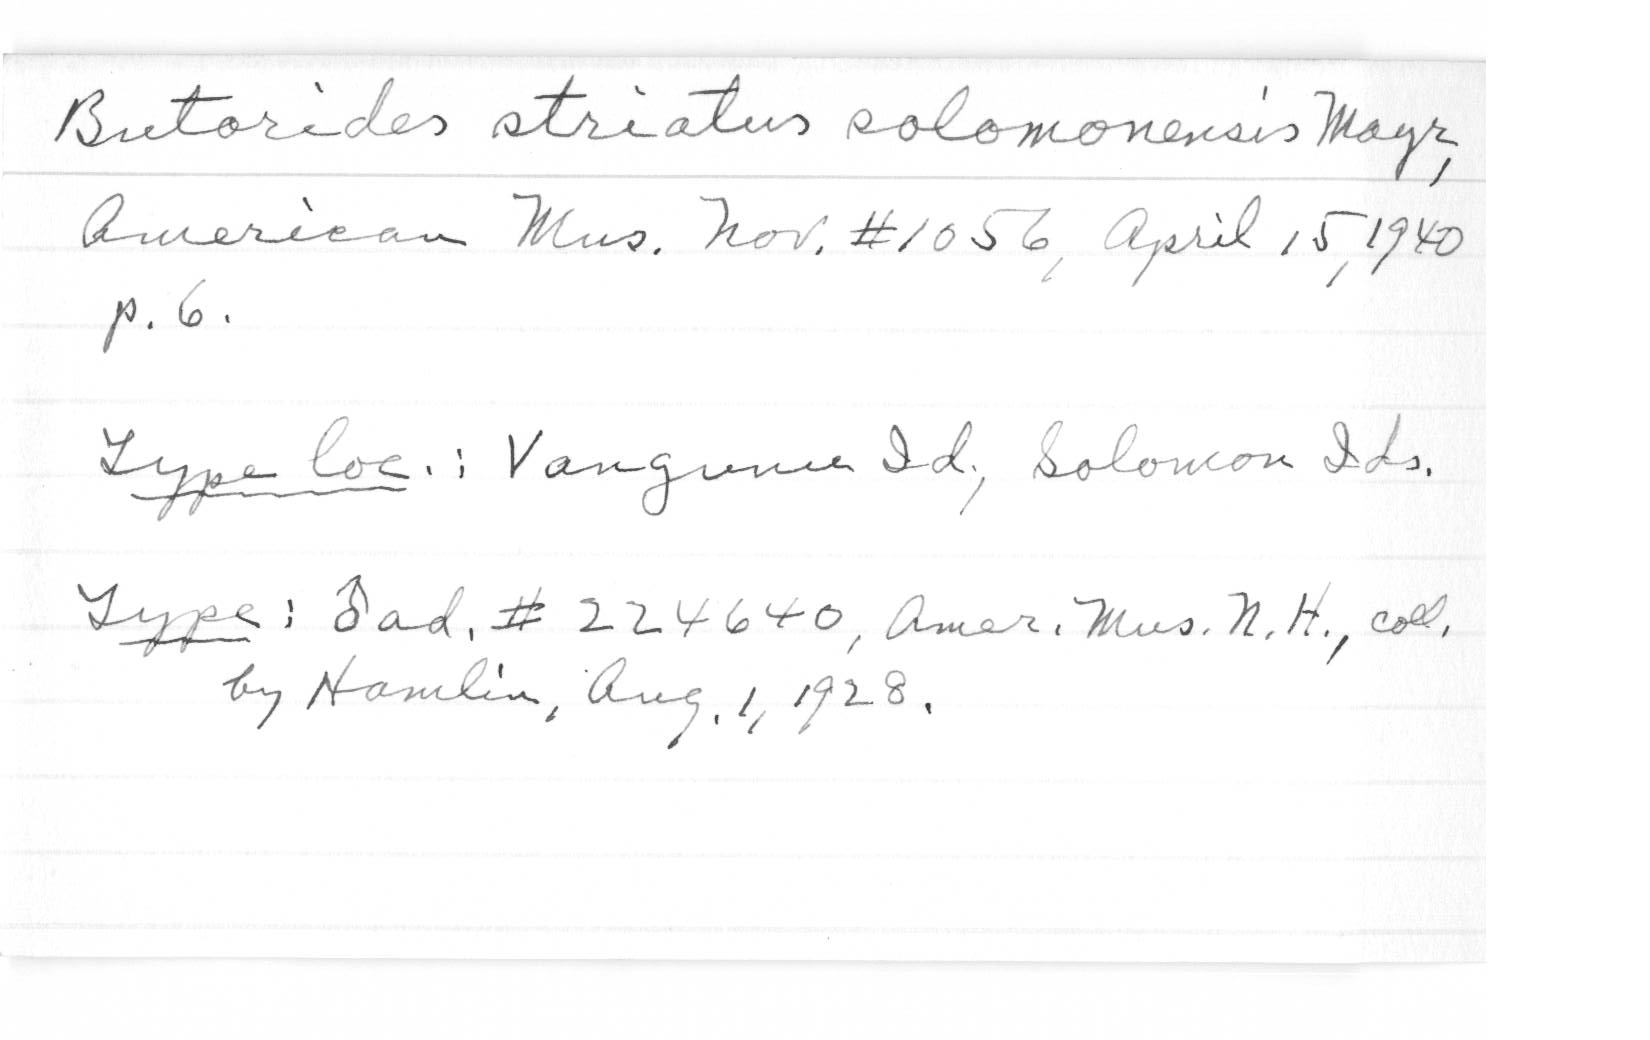 Butorides striatus solomonensis Mayr,
American Mus. Nov. #1056, April 15, 1940
p. 6.
Type loc.: Vangunu Id., Solomon Ids.
Type: ♂ ad. # 224640, Amer. Mus. N. H., coll.
by Hamlin, Aug. 1, 1928.